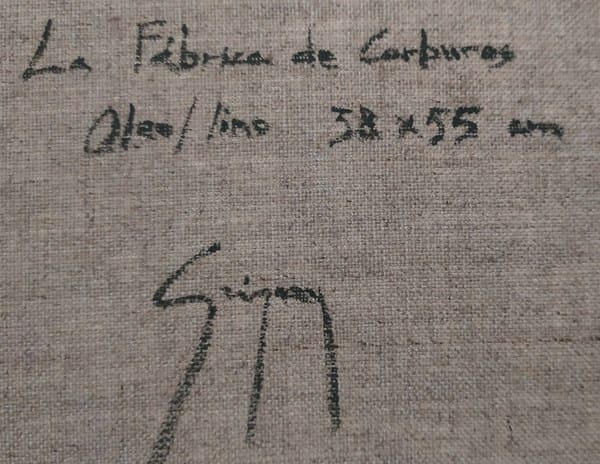 La Fábrica de Carburos
Oleo/lino 38 x 55 cm